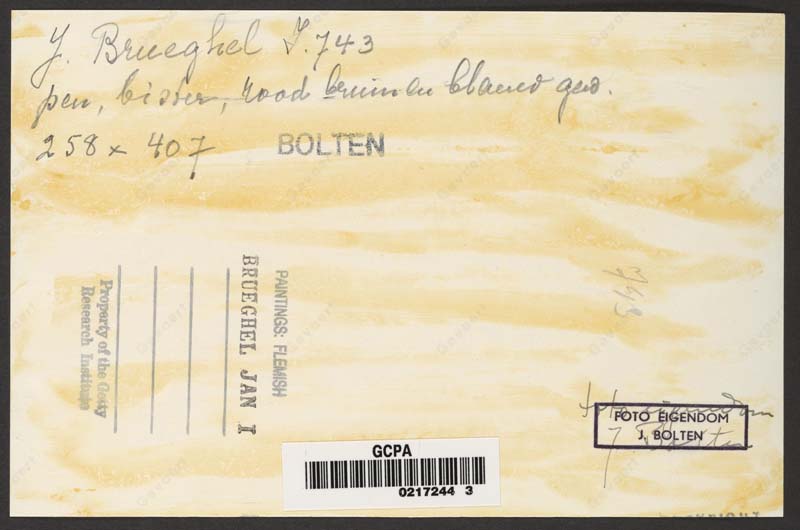 J. Brueghel I.743
pen, bister, rood bruin en blauw gew.
258 x 407
BOLTEN
PAINTINGS: FLEMISH
BRUEGHEL JAN I
Property of the Getty
Research Institute
743
foto eigendom
J. Bolten
FOTO EIGENDOM
J. BOLTEN
GCPA
0217244 3
Gevaert